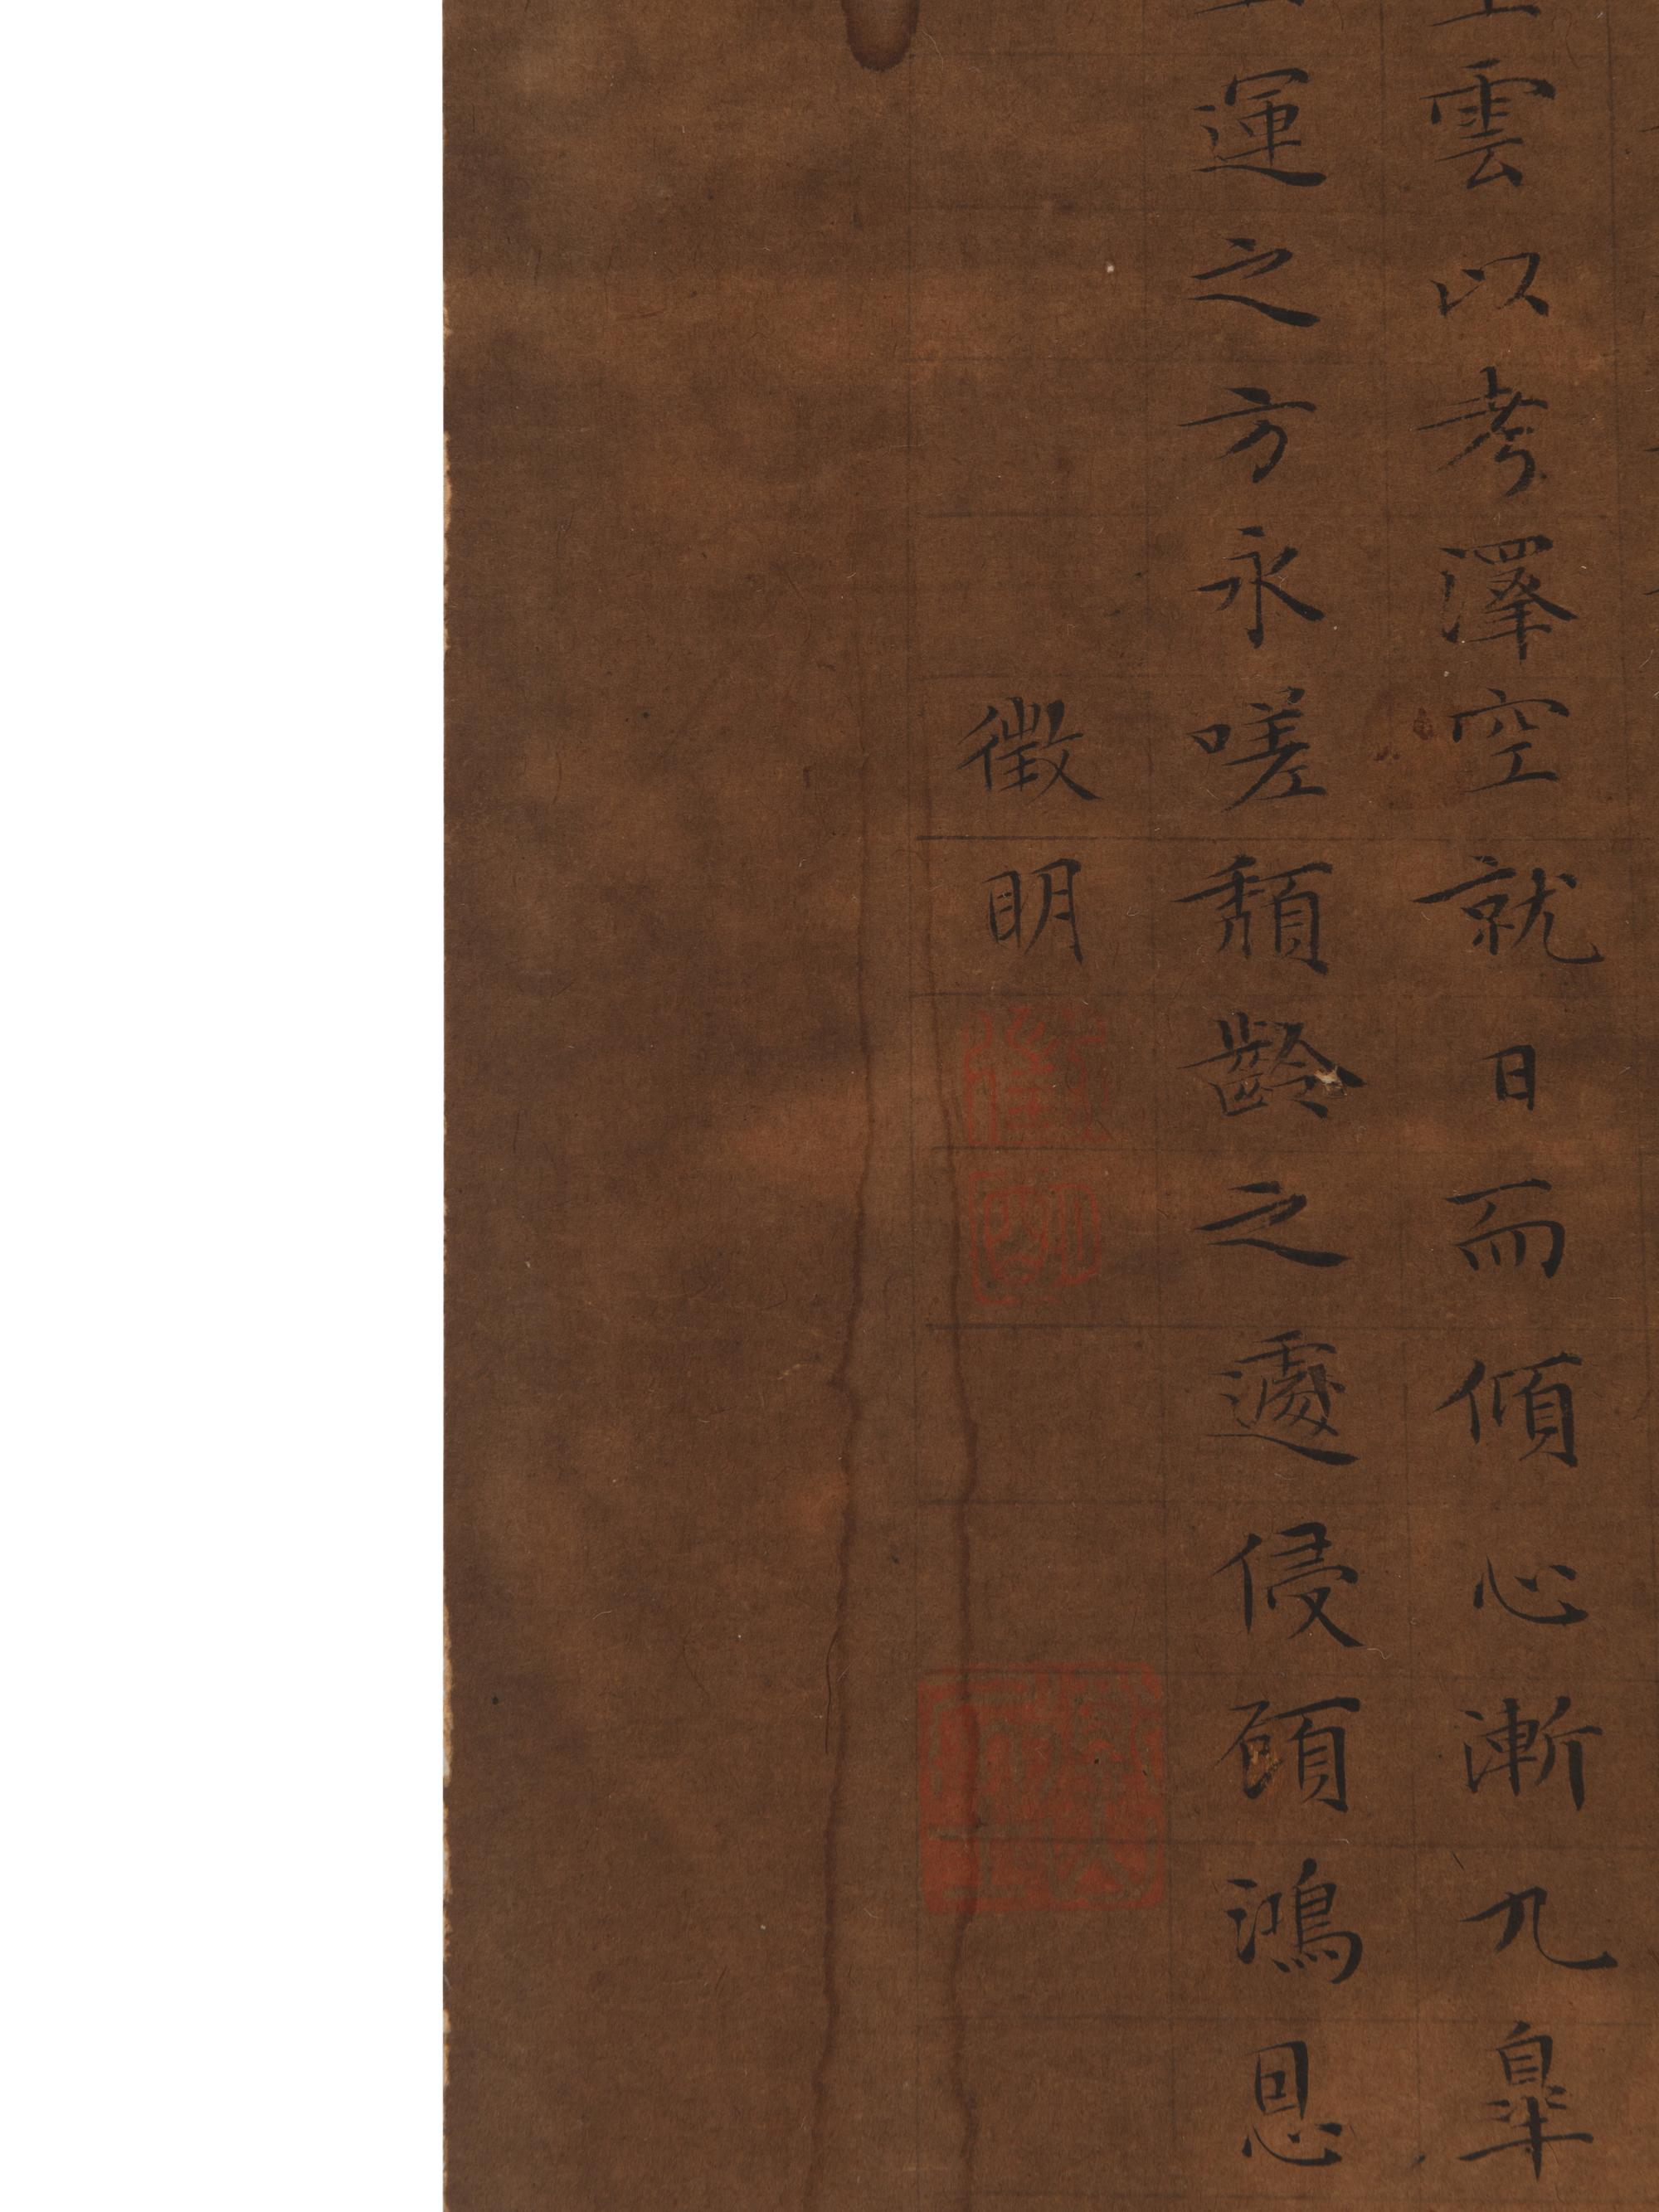 雲以考澤空就日而傾心漸九皐
運之方永嗟頹齡之遽侵顧鴻恩
徵明